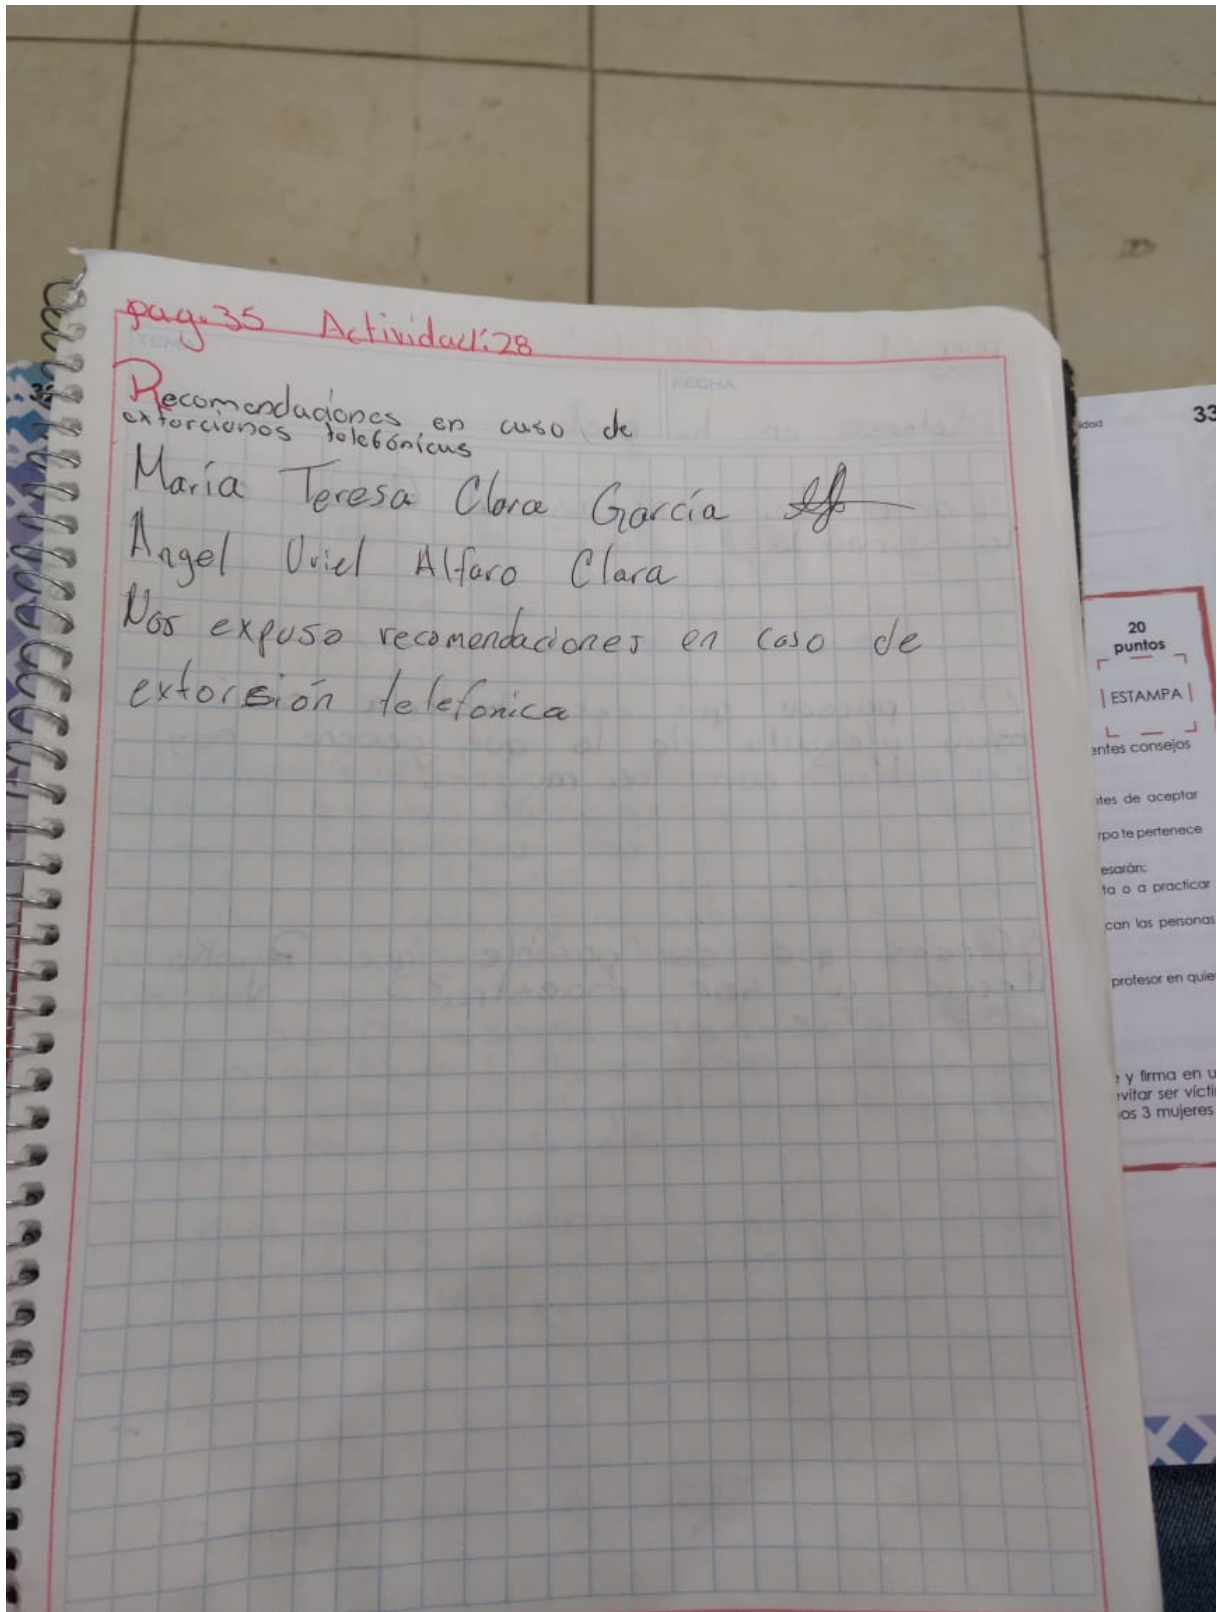 pag. 35 Actividad: 28
TEMA
FECHA
Recomendaciones en cuso de
extorcionos telefónicus
María Teresa Clara García
Angel Uriel Alfaro Clara
Nos expuso recomendaciones en caso de
extorsión telefonica
33
idad
20
puntos
ESTAMPA
entes consejos
ntes de aceptar
rpo te pertenece
esarán:
ta o a practicar
can las personas
profesor en quie
y firma en u
evitar ser vícti
os 3 mujeres